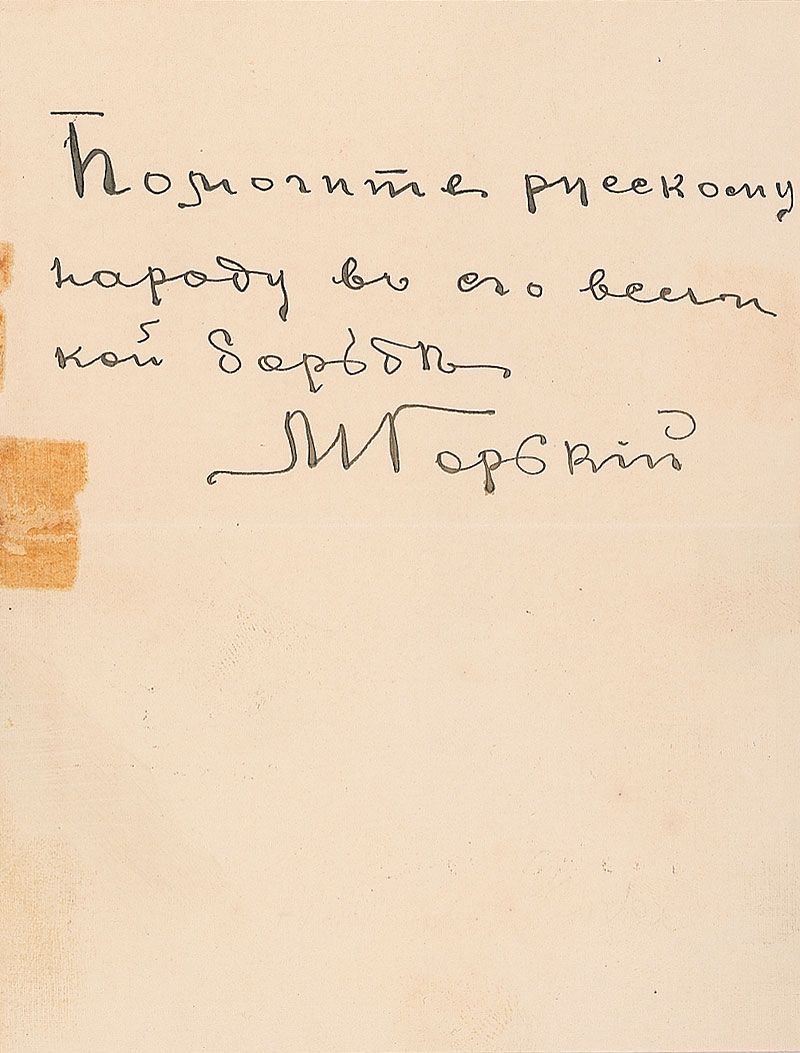 Помогите русскому
народу въ его вели
кой борьбѣ
М Горькій